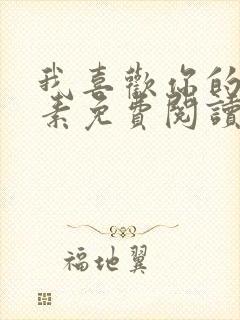 我喜歡你的
素免費閱讀
福地翼